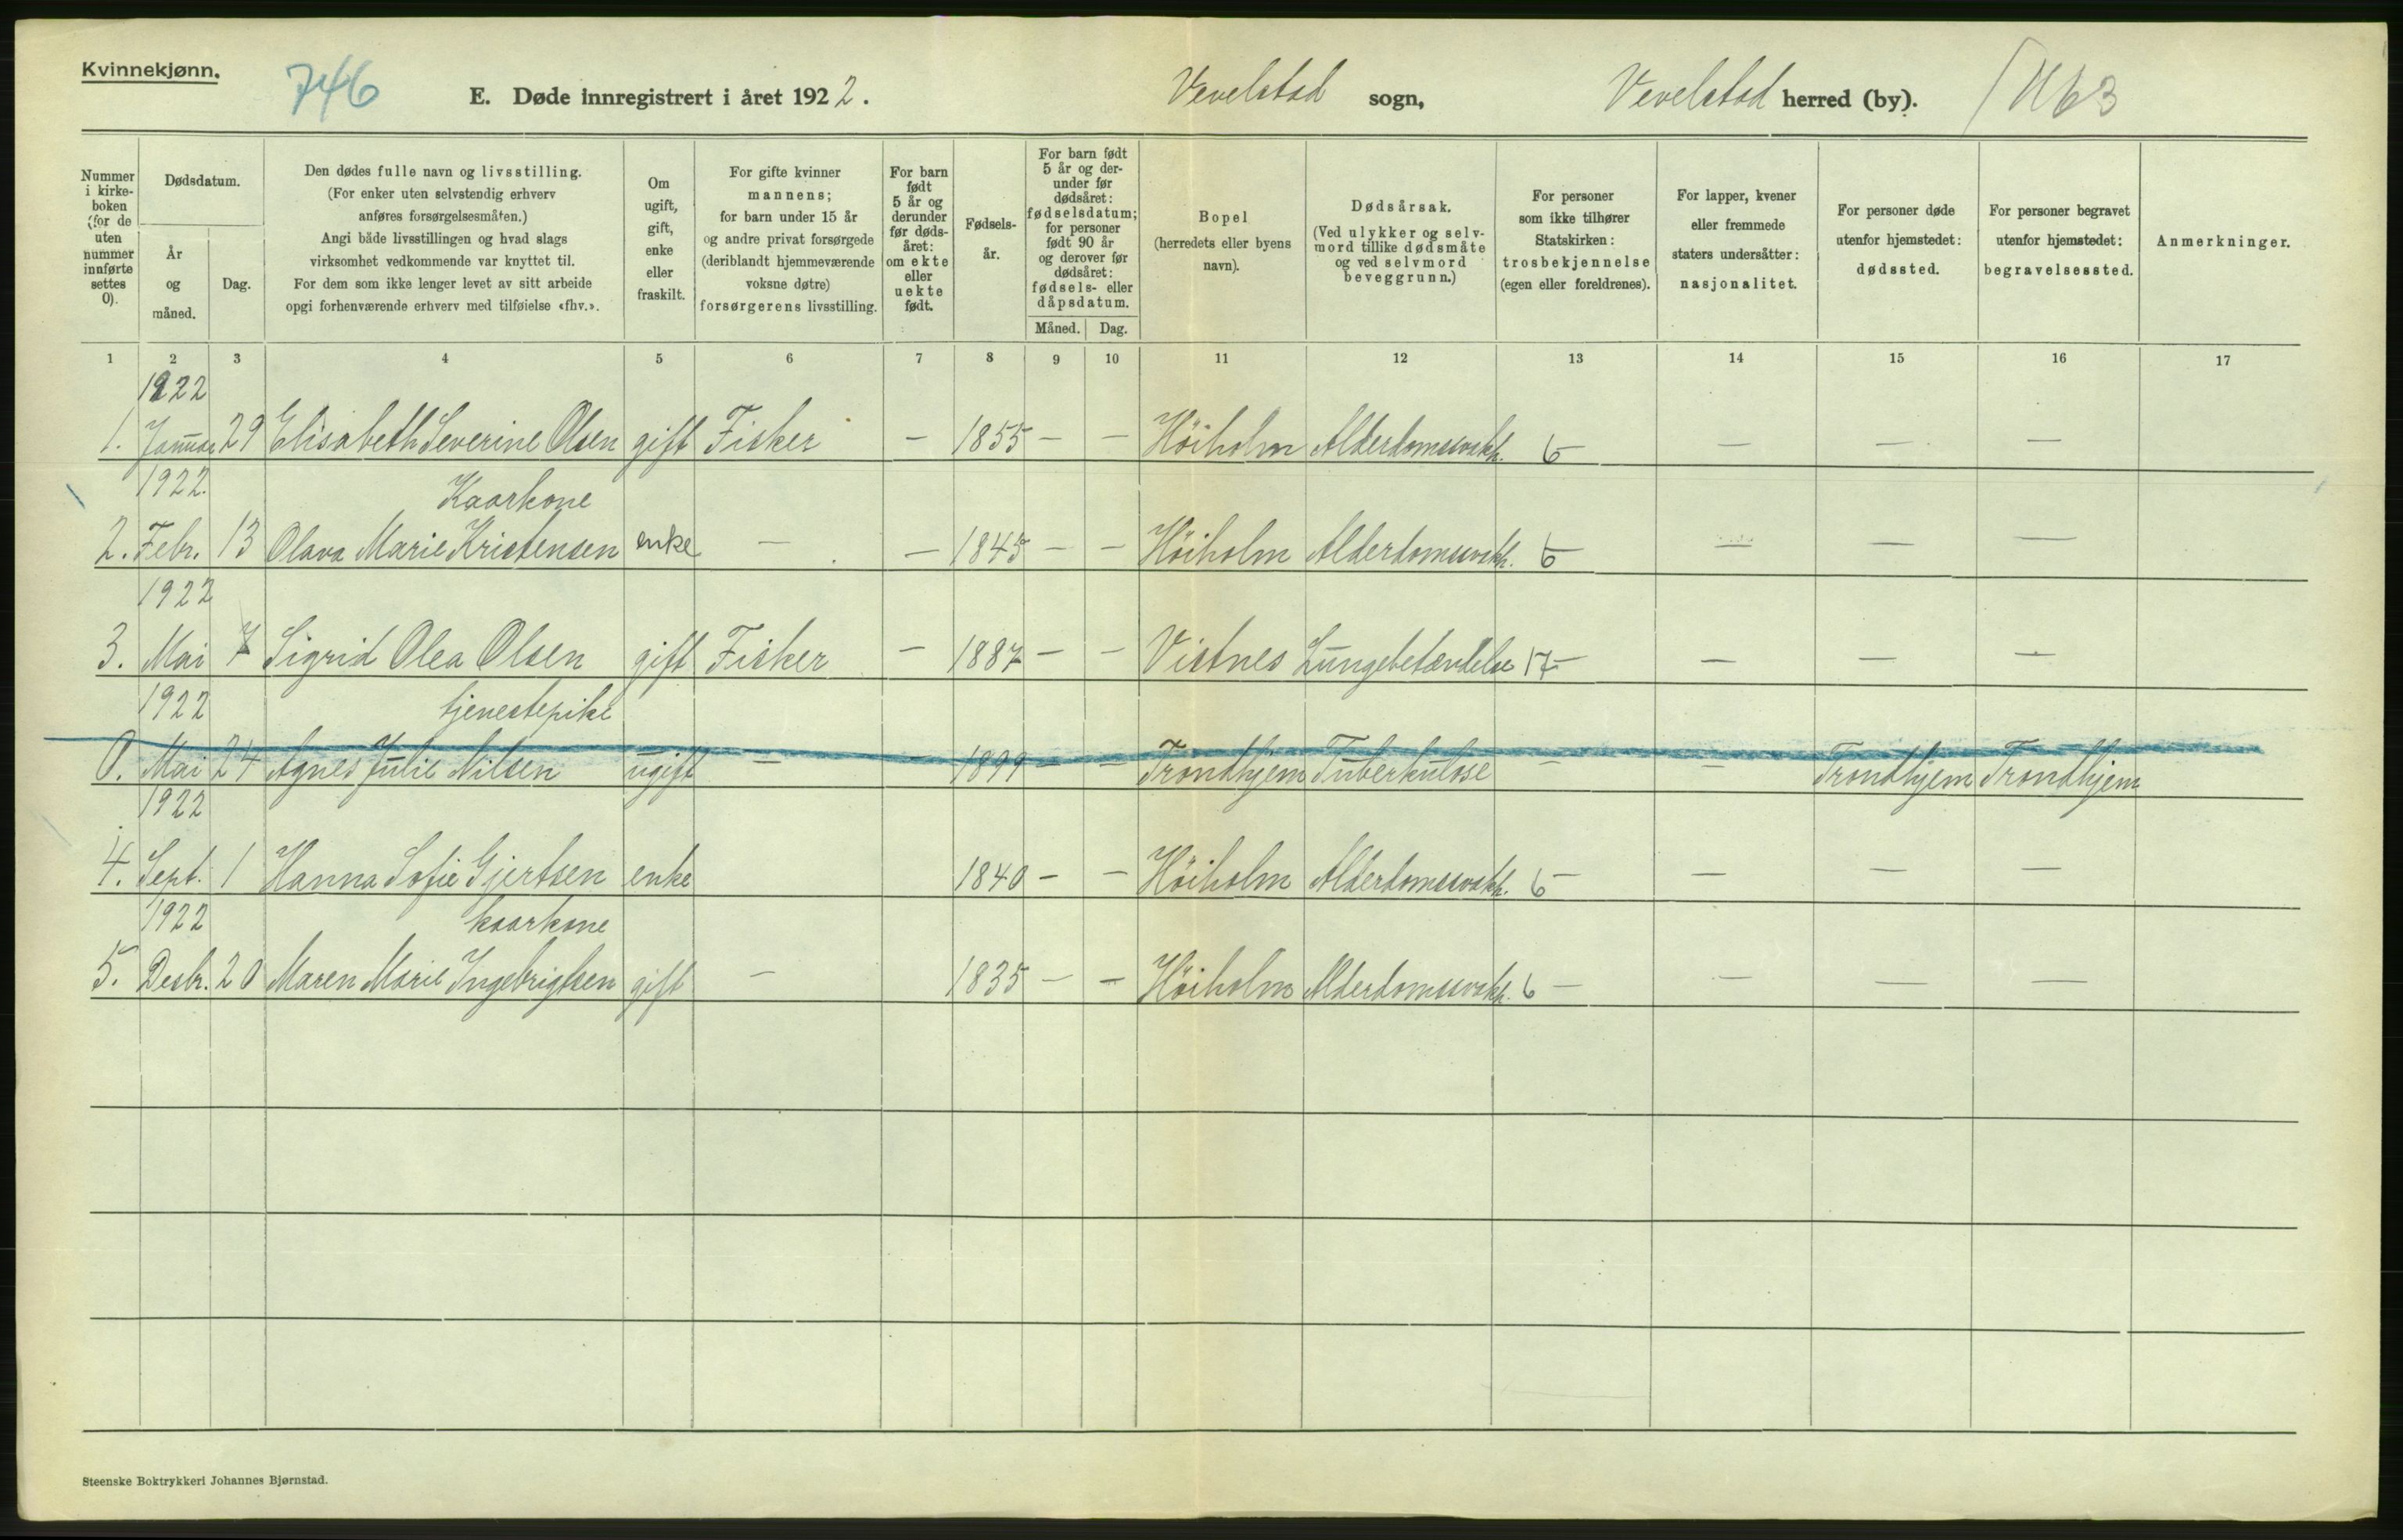 Kvinnekjønn.
746
E. Døde innregistrert i året 1922.
Vevelstad sogn,
Vevelstad herred (by).
Nummer i kirke-boken (for de uten nummer innførte settes 0).
Dødsdatum.
År og måned.
Dag.
Den dødes fulle navn og livsstilling.
(For enker uten selvstendig erhverv
anføres forsørgelsesmåten.)
Angi både livsstillingen og hvad slags
virksomhet vedkommende var knyttet til.
For dem som ikke lenger levet av sitt arbeide
opgi forhenværende erhverv med tilføielse «fhv.».
Om ugift, gift, enke eller fraskilt.
For gifte kvinner
mannens;
for barn under 15 år
og andre privat forsørgede
(deriblandt hjemmeværende
voksne døtre)
forsørgerens livsstilling.
For barn født 5 år og derunder før døds-året: om ekte eller uekte født.
Fødsels-år.
For barn født 5 år og der-under før dødsåret: fødselsdatum; for personer født 90 år og derover før dødsåret: fødsels- eller dåpsdatum.
Måned. Dag.
Bopel
(herredets eller byens
navn).
Dødsårsak.
(Ved ulykker og selv-
mord tillike dødsmåte
og ved selvmord
beveggrunn.)
For personer
som ikke tilhører
Statskirken:
trosbekjennelse
(egen eller foreldrenes).
For lapper, kvener
eller fremmede
staters undersåtter:
nasjonalitet.
For personer døde
utenfor hjemstedet:
dødssted.
For personer begravet
utenfor hjemstedet:
begravelsessted.
Anmerkninger.
1 2 3 4 5 6 7 8 9 10 11 12 13 14 15 16 17
1922
1. Januar 29 Elisabeth Severine Olsen gift Fisker — 1855 — — Höiholm Alderdomssvakh. 6 — — — —
1922. Kaarkone
2. Febr. 13 Olava Marie Kristensen enke — — 1845 — — Höiholm Alderdomssvakh. 6 — — — —
1922
3. Mai 7 Sigrid Olea Olsen gift Fisker — 1887 — — Vistnes Lungebetændelse 17 — — — —
1922 tjenestepike
0. Mai 24 Agnes Julie Nilsen ugift — — 1899 — — Trondhjem Tuberkulose — — Trondhjem Trondhjem
1922
4. Sept. 1 Hanna Sofie Gjertsen enke 1840 — — Höiholm Alderdomssvakh. 6 — — — —
1922 kaarkone
5. Desbr. 20 Maren Marie Ingebrigtsen gift — 1835 — — Höiholm Alderdomssvakh. 6 — — — —
Steenske Boktrykkeri Johannes Bjørnstad.